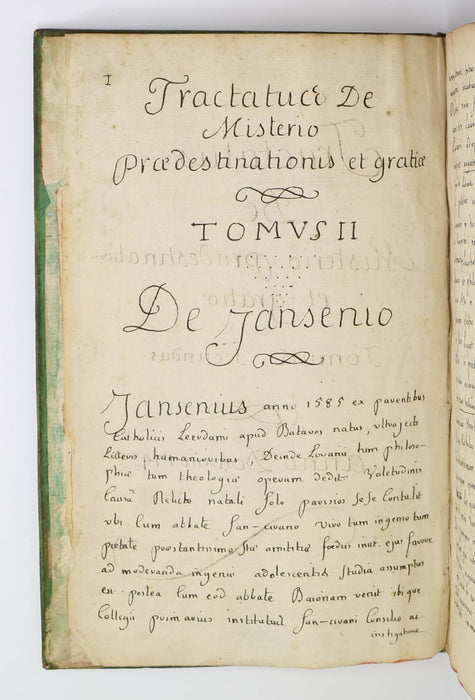 1
Tractatus De
Misterio
Prædestinationis et gratiæ
TOMVS II
De Jansenio
Jansenius anno 1585 ex parentibus
Catholicis Leerdami apud Batavos natus, ultrajecti
humanioribus, Deinde Lovanii tum philoso-
phiæ tum theologiæ operam dedit. Valetudinis
causa Relicto natali solo parisios se se Contulit
ubi Cum abbate San-cirano viro tum ingenio tum
pietate præstantissimo amicitiæ fœdus iniit. ejus favore
ad moderanda ingenia adolescentis studia assumptus
est. postea Cum eod abbate Baionam venit ibique
Collegii primarius institutus San-cirani Consilio ac
instigatione